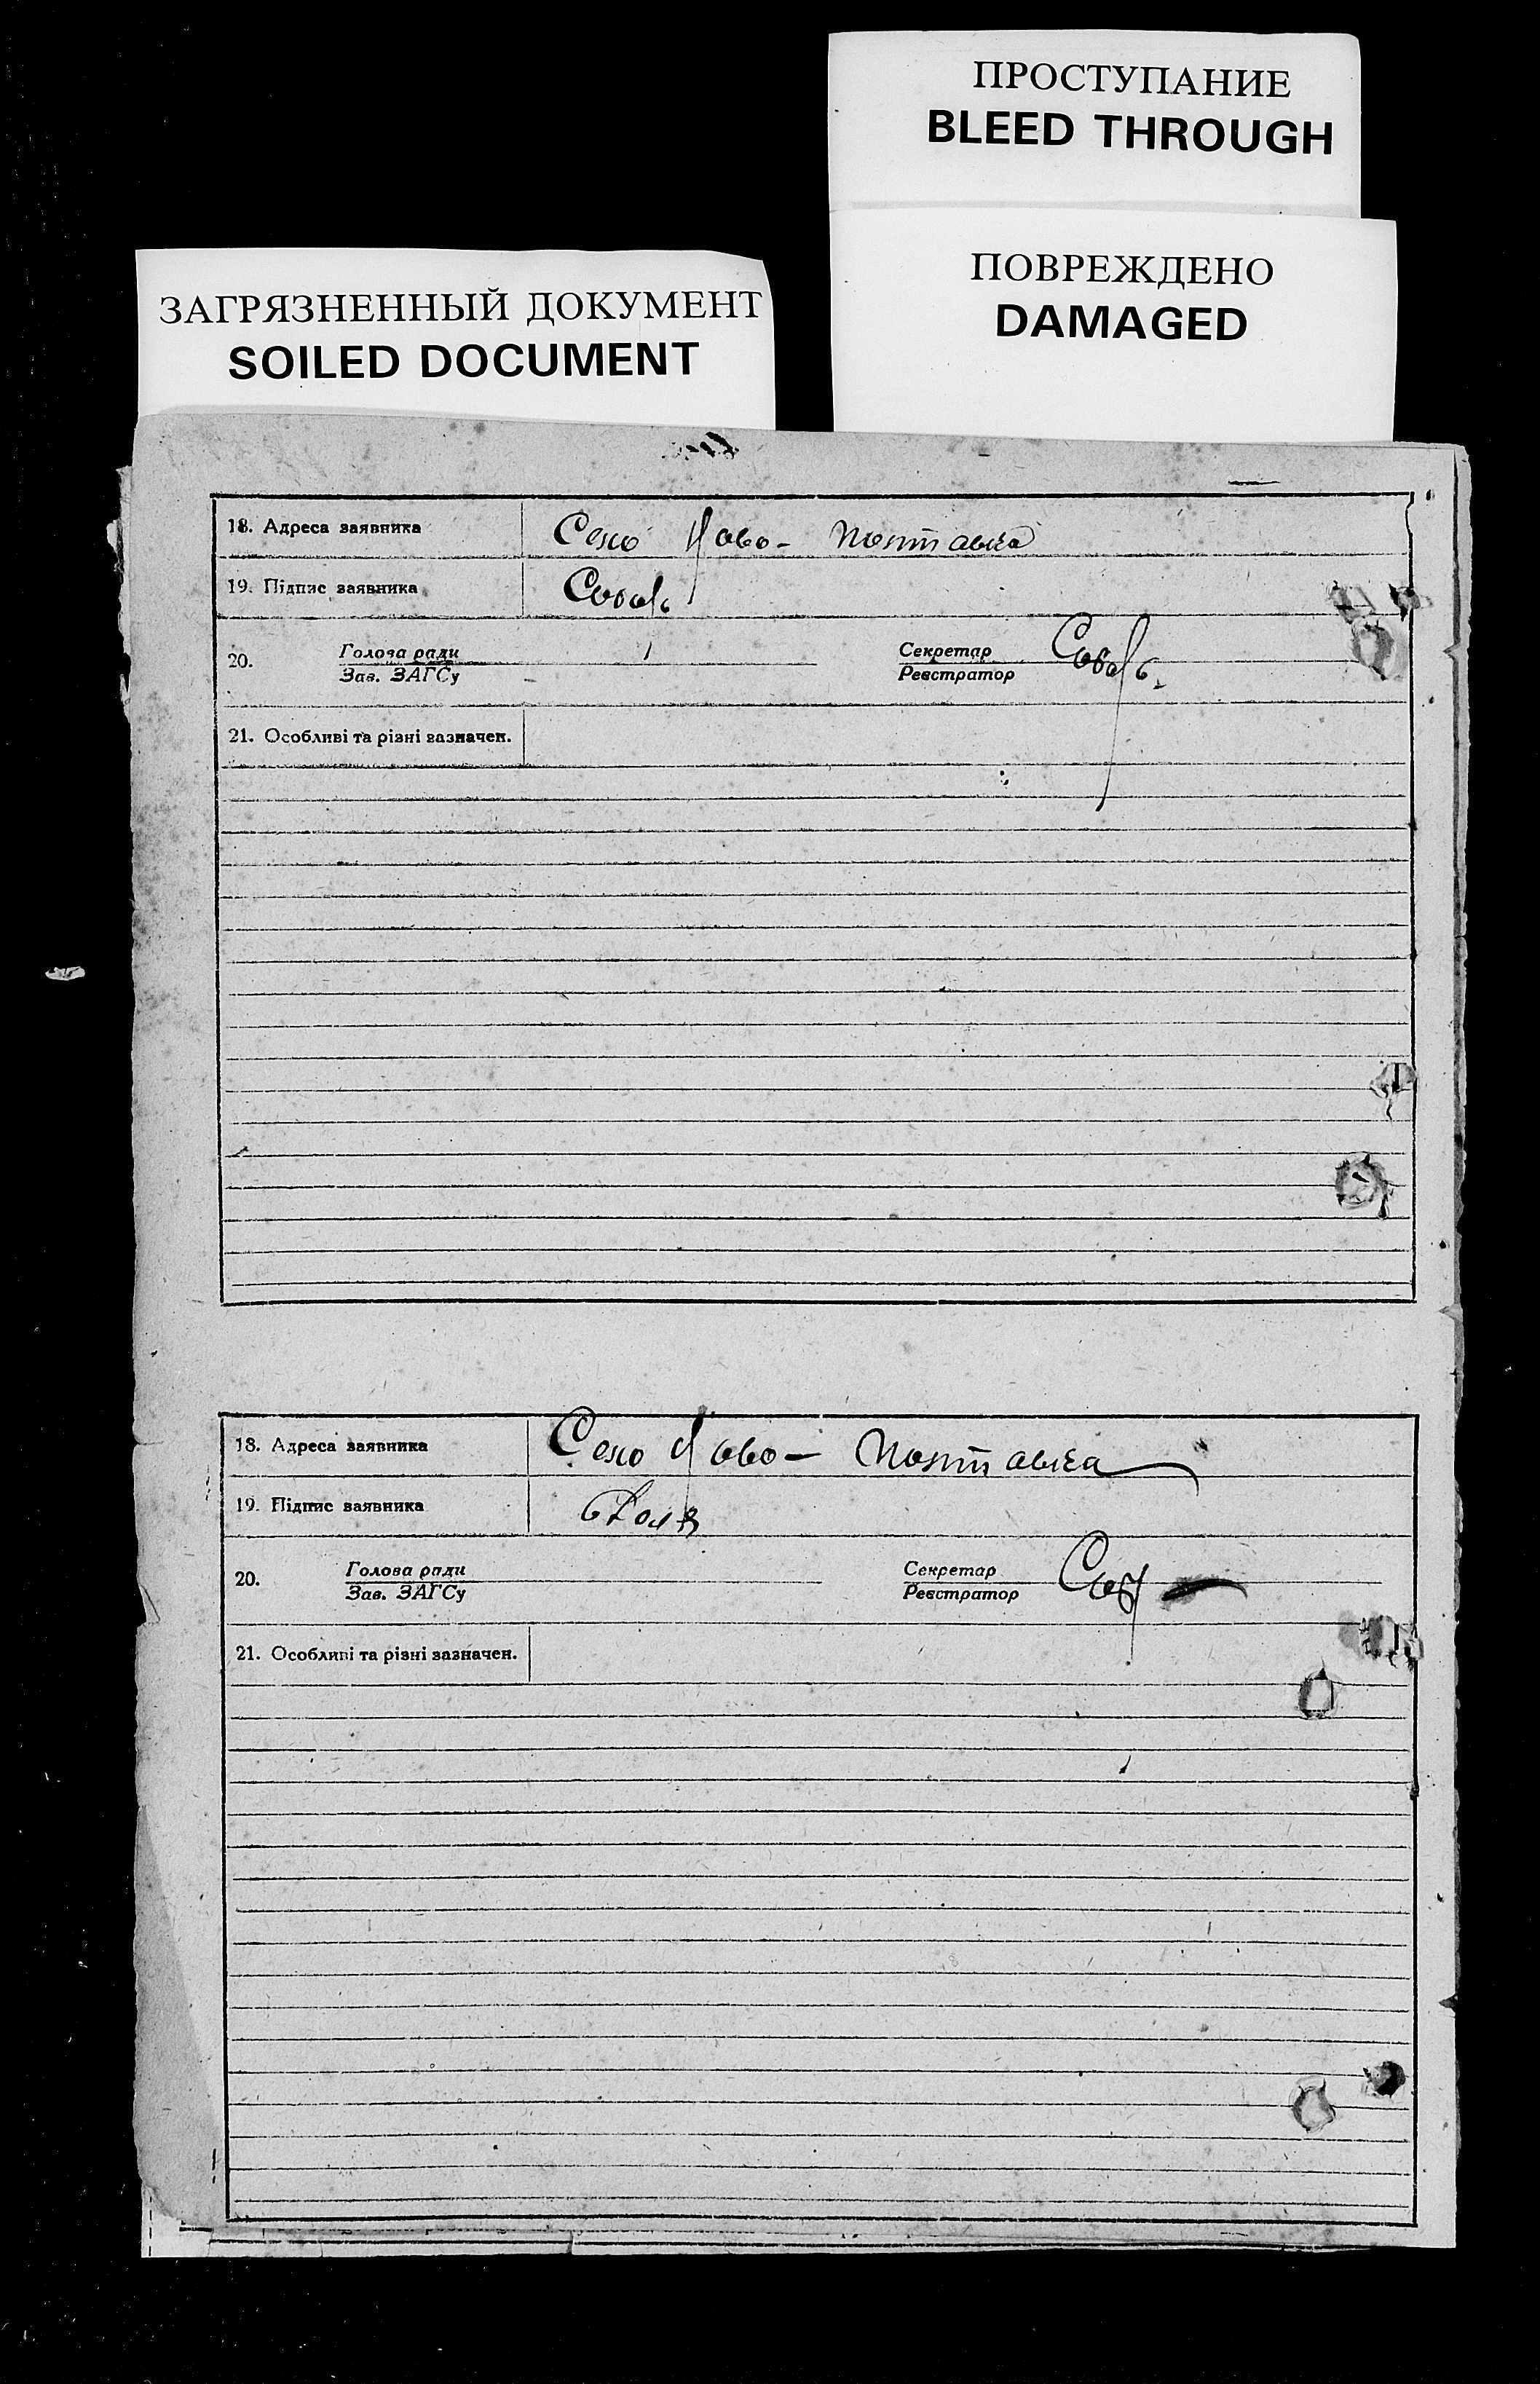 ПРОСТУПАНИЕ
BLEED THROUGH
ПОВРЕЖДЕНО
DAMAGED
ЗАГРЯЗНЕННЫЙ ДОКУМЕНТ
SOILED DOCUMENT
18. Адреса заявника Село Ново- Полтавка
19. Підпис заявника
20. Голова ради Секретар
Зав. ЗАГСу Реєстратор
21. Особливі та різні зазначен.
18. Адреса заявника Село Ново- Полтавка
19. Підпис заявника
20. Голова ради Секретар
Зав. ЗАГСу Реєстратор
21. Особливі та різні зазначен.